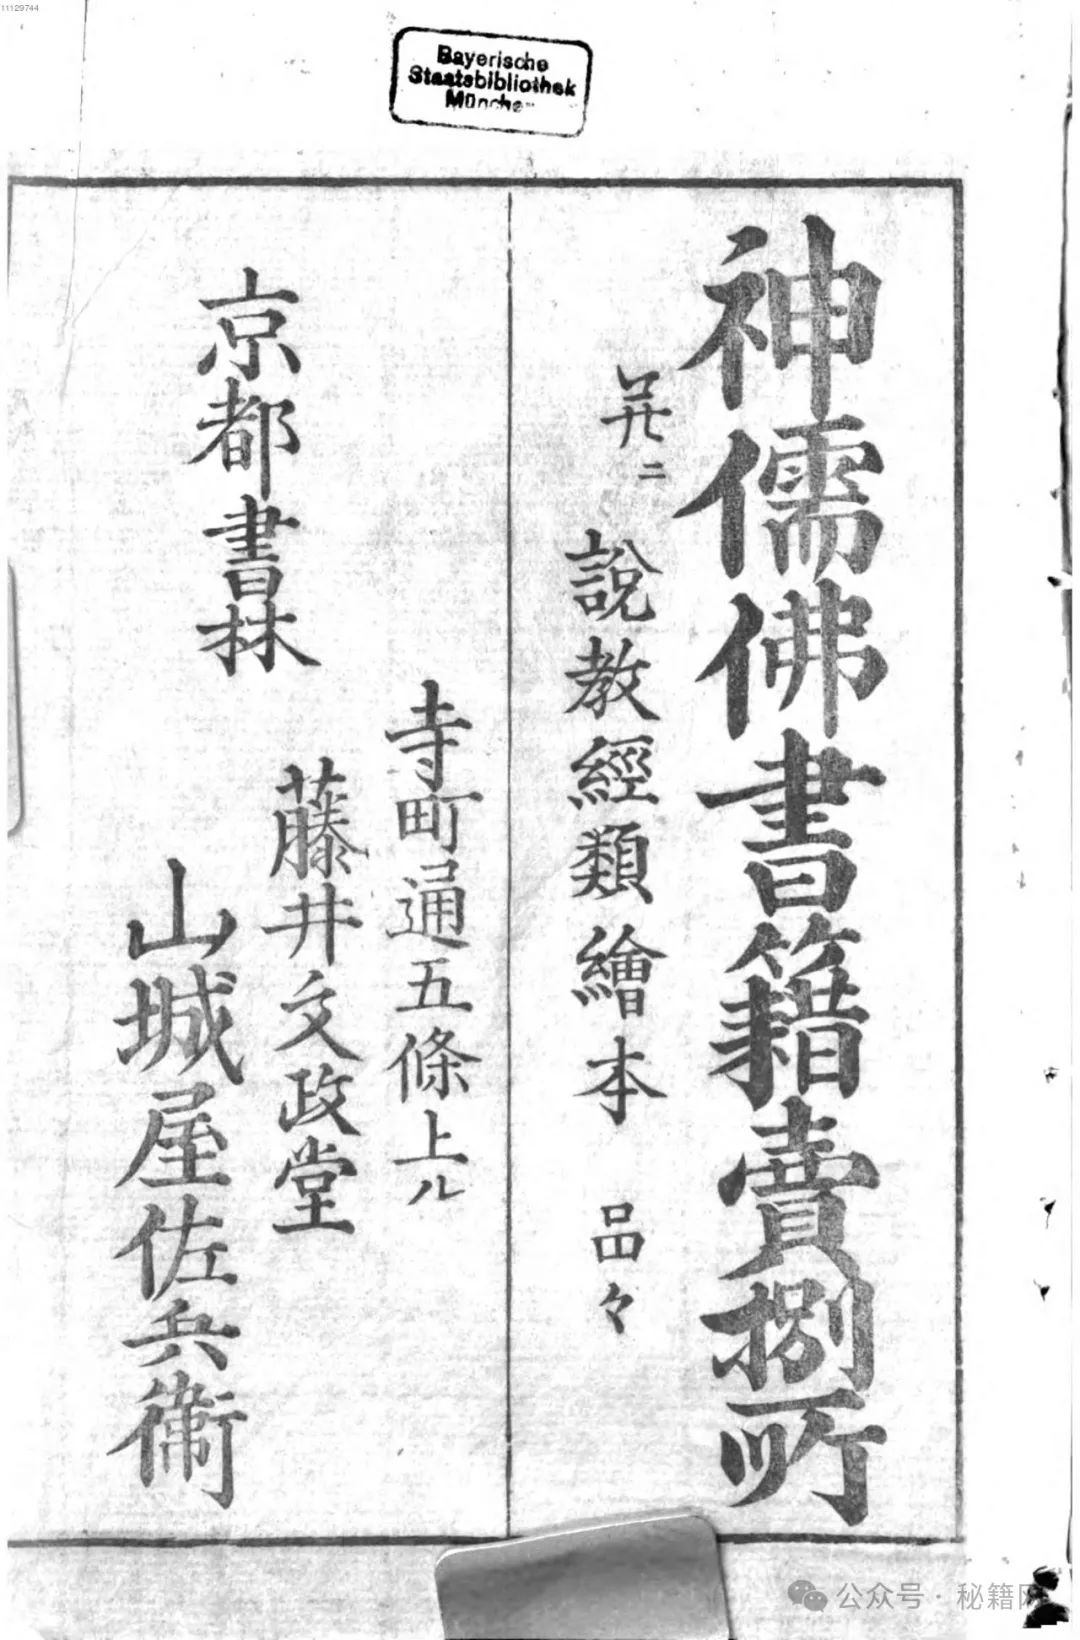 11129744
Bayerische
Staatsbibliothek
Münche
神儒佛書籍賣捌所
幷ニ
說教經類繪本 品々
寺町通五條上ル
藤井文政堂
京都書林
山城屋佐兵衞
公众号·秘籍网